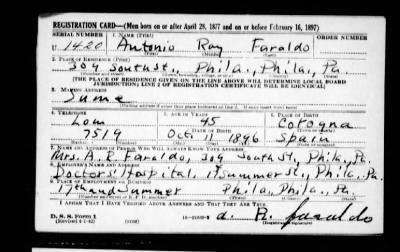 REGISTRATION CARD—(Men born on or after April 28, 1877 and on or before February 16, 1897)
SERIAL NUMBER 1. NAME (Print) ORDER NUMBER
U 1420 Antonio Roy Faraldo
(First) (Middle) (Last)
2. PLACE OF RESIDENCE (Print)
309 South St., Phila., Phila., Pa.
(Number and street) (Town, township, village, or city) (County) (State)
[THE PLACE OF RESIDENCE GIVEN ON THE LINE ABOVE WILL DETERMINE LOCAL BOARD
JURISDICTION; LINE 2 OF REGISTRATION CERTIFICATE WILL BE IDENTICAL]
3. MAILING ADDRESS
Same
[Mailing address if other than place indicated on line 2. If same insert word same]
4. TELEPHONE 5. AGE IN YEARS 6. PLACE OF BIRTH
Lom 45 Corogna
DATE OF BIRTH (Town or county)
7519 Oct. 11 1896 Spain
(Exchange) (Number) (Mo.) (Day) (Yr.) (State or country)
7. NAME AND ADDRESS OF PERSON WHO WILL ALWAYS KNOW YOUR ADDRESS
Mrs. A. R. Faraldo, 309 South St., Phila., Pa.
8. EMPLOYER'S NAME AND ADDRESS
Doctors' Hospital, 17 Summer St., Phila., Pa.
9. PLACE OF EMPLOYMENT OR BUSINESS
17th and Summer Phila., Phila., Pa.
(Number and street or R. F. D. number) (Town) (County) (State)
I AFFIRM THAT I HAVE VERIFIED ABOVE ANSWERS AND THAT THEY ARE TRUE.
D. S. S. Form 1
(Revised 4-1-42) (over) a. R. Faraldo
(Registrant's signature)